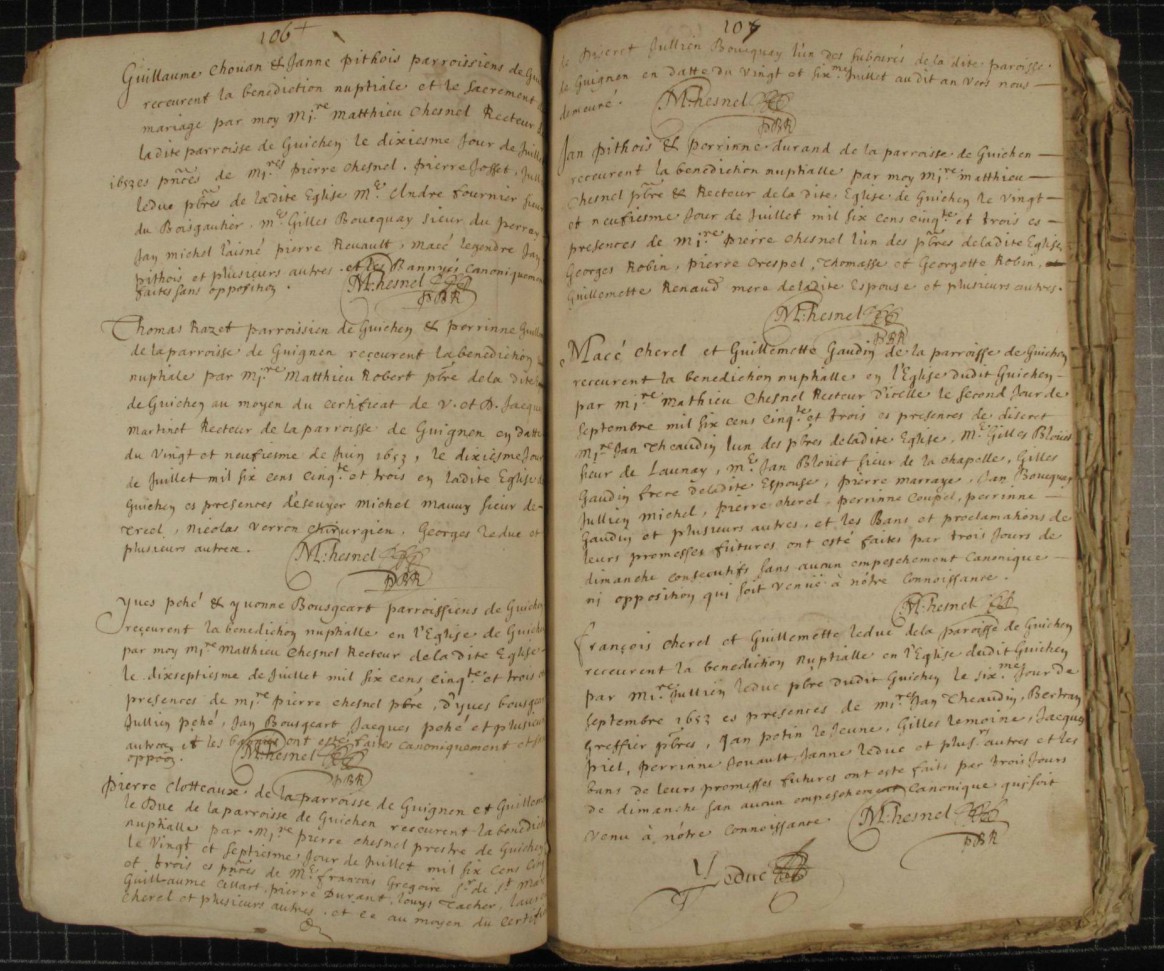 106
Guillaume Chouan & Janne pithois parroissiens de
receurent la benediction nuptiale et le sacrement
mariage par moy Mi.re Matthieu Chesnel Recteur
ladite parroisse de Guichen le dixiesme Jour de Juill
1653 es pnces de Mi.res pierre Chesnel, pierre Josset,
leduc pbres de ladite Eglise M.e Andre fournier sieur
du Boisgautier, M.e Gilles Bouequay sieur du perray
Jan michel l'aisné pierre Renault, Macé legendre Jan
pithois et plusieurs autres. et les Bannyes Canoniquement
faites sans opposition.
M. Chesnel
PBR
Thomas Razet parroissien de Guichen & perrinne
de la parroisse de Guignen receurent la benediction
nuptiale par Mi.re Matthieu Robert pbre de la dite
de Guichen au moyen du certificat de V. et D. Jacques
Martinot Recteur de la parroisse de Guignen en datte
du Vingt et neufiesme de Juin 1653, le dixiesme Jour
de Juillet mil six cens cinq.te et trois en ladite Eglise de
Guichen es presences d'escuyer Michel Mauuy sieur de
Nicolas Verron Chirurgien, Georges leduc et
plusieurs autres.
M. Chesnel
PBR
Yves pehé & yvonne Bousgeart parroissiens de Guichen
receurent la benediction nuphalle en l'Eglise de Guichen
par moy Mi.re Matthieu Chesnel Recteur de la dite Eglise
le dixseptiesme de Juillet mil six cens cinq.te et trois
presences de mi.re pierre Chesnel pbre, d'yues bousgeart
Jullien pehé, Jan Bousgeart Jacques pehé et plusieurs
autres et les ont esté faites canoniquement et
oppon.
M. Chesnel
PBR
pierre Clotteaux de la parroisse de Guignen et Guillem
le Duc de la parroisse de Guichen receurent la benedict
nuphalle par Mi.re pierre Chesnel prestre de Guichen
le Vingt et septiesme Jour de Juillet mil six cens cinq
et trois es pnces de M.e francois Gregoire S.r de S.t
Guillaume Cillart, pierre Durant, Louys Tacher,
Cherel et plusieurs autres. et ce au moyen du certif
107
de Discret Jullien Bouequay l'un des de la dite paroisse
de Guignen en datte du Vingt et six.me Juillet audit an Vers nous
demeuré.
M. Chesnel
PBR
Jan pithois & perrinne durand de la parroisse de Guichen
receurent la benediction nuphalle par moy mi.re matthieu
Chesnel pbre & Recteur de la dite Eglise de Guichen le Vingt
et neufiesme Jour de Juillet mil six cens cinq.te et trois es
presences de mi.re pierre Chesnel l'un des pbres de ladite Eglise,
Georges Robin, pierre Crespel, Thomasse et Georgette Robin,
Guillemette Renaud mere de ladite Espouse et plusieurs autres.
M. Chesnel
PBR
Macé Cherel et Guillemette Gaudin de la parroisse de Guichen
receurent la benediction nuphalle en l'Eglise dudit Guichen
par mi.re Mathieu Chesnel Recteur d'icelle le second Jour de
Septembre mil six cens cinq.te et trois es presences de discret
Mi.re Jan Theaudin l'un des pbres de ladite Eglise, M.e Gilles Bloüet
sieur de Launay, m.e Jan Bloüet sieur de la chapelle, Gilles
Gaudin frere de ladite Espouse, pierre marraye, Jan Bouequay
Jullien Michel, pierre Cherel, perrinne Coupel, perrinne
Gaudin et plusieurs autres, et les Bans et proclamations de
leurs promesses futures ont esté faites par trois Jours de
dimanche consecutifs sans aucun empeschement Canonique
ni opposition qui soit venüe à nôtre connoissance.
M. Chesnel
françois Cherel et Guillemette leduc de la paroisse de Guichen
receurent la benediction Nuptialle en l'Eglise dudit Guichen
par Mi.re Jullien leduc pbre dudit Guichen le six.me Jour de
Septembre 1653 es presences de mi.re Jan Theaudin, Bertran
Greffier pbres, Jan potin le Jeune, Gilles lemoine, Jacques
piel, perrinne Jouault, Janne leduc et plus.rs autres et les
bans de leurs promesses futures ont esté faits par trois Jours
de dimanche san aucun empeschement Canonique qui soit
venu à nôtre connoissance
M. Chesnel
PBR
Leduc